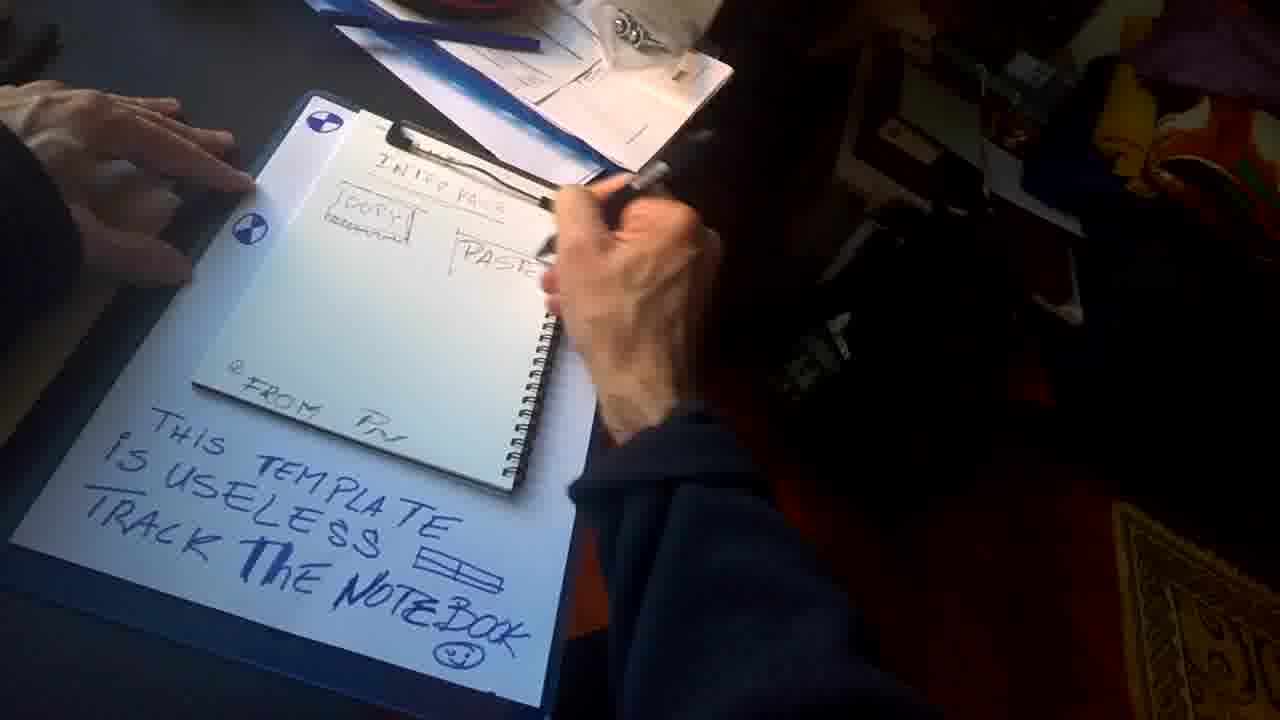 COPY
PASTE
FROM
THIS TEMPLATE
iS USELESS
TRACK THE NOTEBOOK